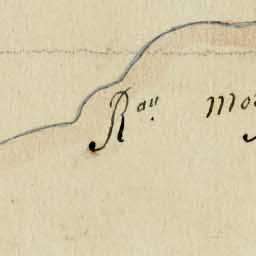 Rau mo